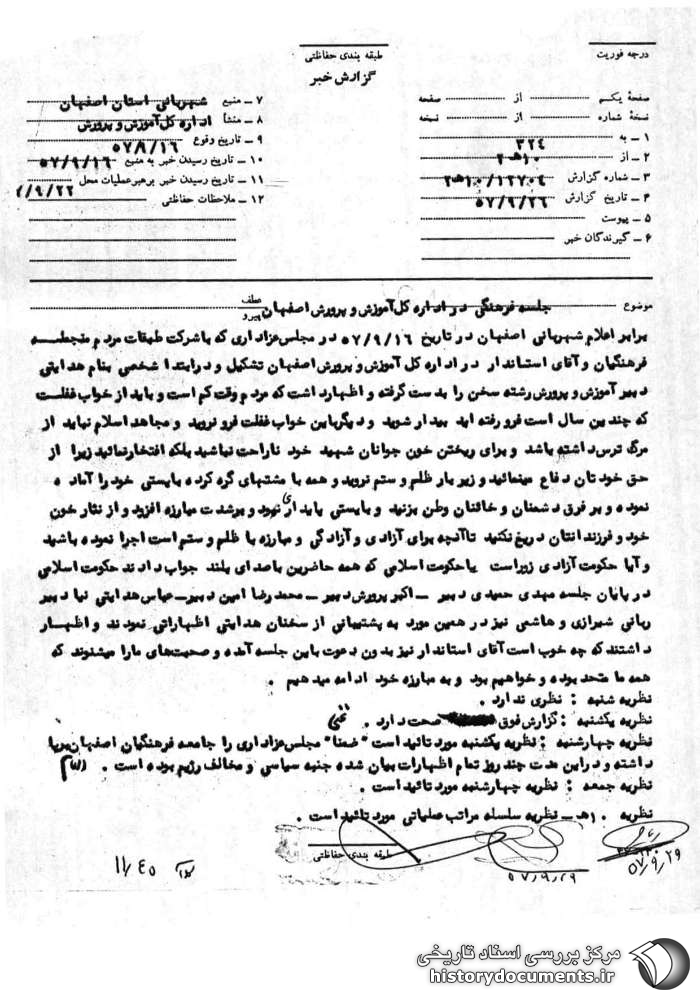 درجه فوریت
طبقه بندی حفاظتی
گزارش خبر
صفحهٔ یکم از صفحه
نسخهٔ شماره از نسخه
۱ – به ۳۲۴
۲ – از ۱۰هـ۲
۳ – شماره گزارش ۲هـ۱۰/۱۲۷۰۴
۴ – تاریخ گزارش ۵۷/۹/۲۶
۵ – پیوست
۶ – گیرندگان خبر
۷ – منبع شهربانی استان اصفهان
۸ – منشأ اداره کل آموزش و پرورش
۹ – تاریخ وقوع ۵۷/۸/۱۶
۱۰ – تاریخ رسیدن خبر به منبع ۵۷/۹/۱۶
۱۱ – تاریخ رسیدن خبر برهبر عملیات محل ۹/۲۲
۱۲ – ملاحظات حفاظتی
موضوع جلسه فرهنگی در اداره کل آموزش و پرورش اصفهان عطف پیرو
برابر اعلام شهربانی اصفهان در تاریخ ۵۷/۹/۱۶ در مجلس عزاداری که با شرکت طبقات مردم منجمله
فرهنگیان و آقای استاندار در اداره کل آموزش و پرورش اصفهان تشکیل و در ابتدا شخصی بنام هدایتی
دبیر آموزش و پرورش رشته سخن را بدست گرفته و اظهار داشت که مردم وقت کم است و باید از خواب غفلت
که چندین سال است فرو رفته اید بیدار شوید و دیگر باین خواب غفلت فرو نروید و مجاهد اسلام نباید از
مرگ ترس داشته باشد و برای ریختن خون جوانان شهید خود ناراحت نباشید بلکه افتخار نمائید زیرا از
حق خودتان دفاع مینمائید و زیر بار ظلم و ستم نروید و همه با مشتهای گره کرده بایستی خود را آماده
نموده و بر فرق دشمنان و خائنان وطن بزنید و بایستی پایداری نمود و بر شدت مبارزه افزود و از نثار خون
خود و فرزندانتان دریغ نکنید تا آنچه برای آزادی و آزادگی و مبارزه با ظلم و ستم است اجرا نموده باشید
و آیا حکومت آزادی زور است یا حکومت اسلامی که همه حاضرین با صدای بلند جواب دادند حکومت اسلامی
در پایان جلسه مهدی حمیدی دبیر – اکبر پرورش دبیر – محمد رضا امین دبیر – عباس هدایتی نیا دبیر
ربانی شیرازی و هاشمی نیز در همین مورد به پشتیبانی از سخنان هدایتی اظهاراتی نمودند و اظهار
داشتند که چه خوب است آقای استاندار نیز بدون دعوت باین جلسه آمده و صحبتهای ما را میشنوند که
همه ما متحد بوده و خواهیم بود و به مبارزه خود ادامه میدهیم .
نظریه شنبه : نظری ندارد .
نظریه یکشنبه : گزارش فوق صحت دارد .
نظریه چهارشنبه : نظریه یکشنبه مورد تائید است "ضمنا" مجلس عزاداری را جامعه فرهنگیان اصفهان برپا
داشته و در این مدت چند روز تمام اظهارات بیان شده جنبه سیاسی و مخالف رژیم بوده است .
نظریه جمعه : نظریه چهارشنبه مورد تائید است .
نظریه ۱۰هـ – نظریه سلسله مراتب عملیاتی مورد تائید است .
طبقه بندی حفاظتی
۵۷/۹/۲۹
۵۷/۹/۲۹
۱۱/۴۵
مرکز بررسی اسناد تاریخی
historydocuments.ir